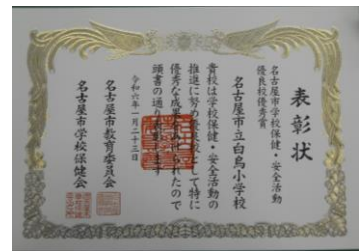 表彰状
名古屋市学校保健・安全活動
優良校優秀賞
名古屋市立白鳥小学校
貴校は学校保健・安全活動の
推進に努め優良校として特に
優秀な成果をあげられたので
頭書の通り表彰します
令和六年一月二十三日
名古屋市教育委員会
名古屋市学校保健会